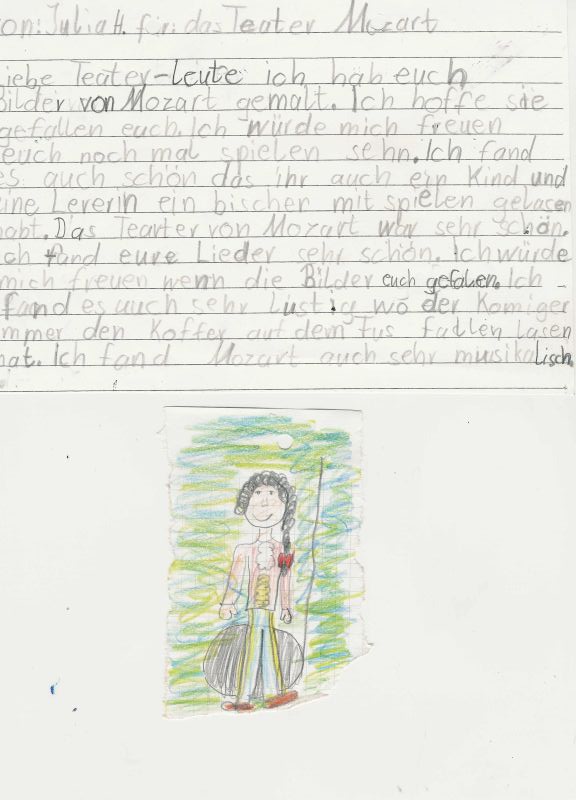 on: Julia H. für: das Teater Mozart
iebe Teater-Leute ich hab euch
Bilder von Mozart gemalt. Ich hoffe sie
gefallen euch. Ich würde mich freuen
euch noch mal spielen sehn. Ich fand
es auch schön das ihr auch ein Kind und
ine Lererin ein bischer mit spielen gelasen
habt. Das Tearter von Mozart war sehr schön.
Ich fand eure Lieder sehr schön. Ich würde
mich freuen wenn die Bilder euch gefalen. Ich
fand es auch sehr lustig wo der Komiger
immer den Koffer auf dem Fus fallen lasen
hat. Ich fand Mozart auch sehr musikalisch.